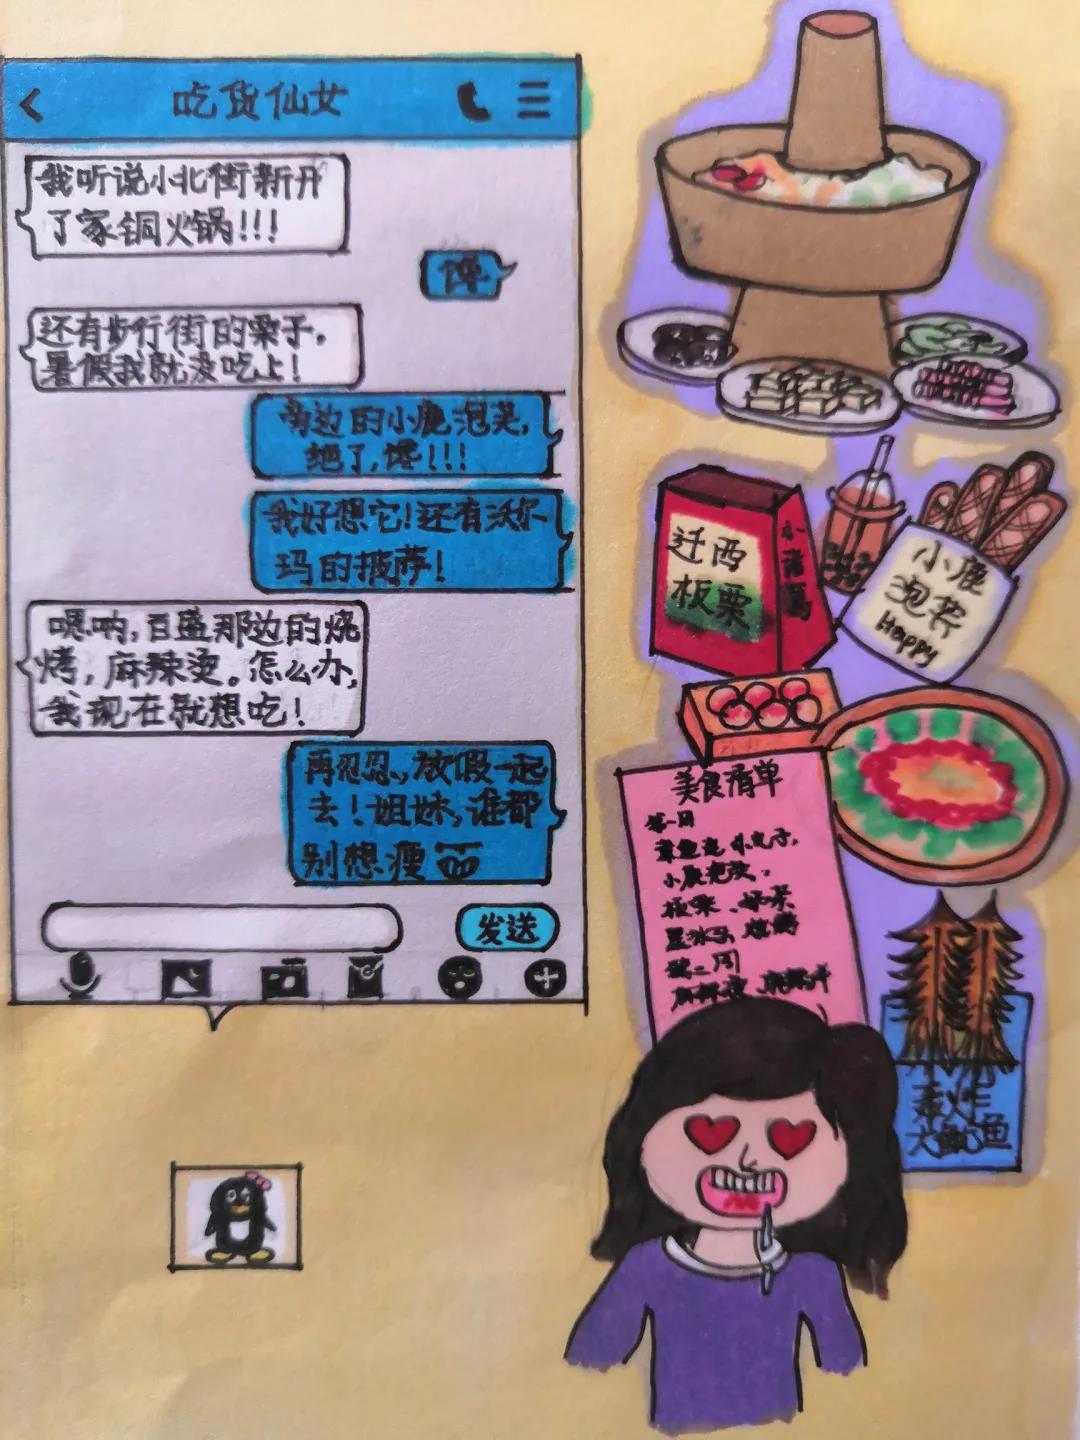 吃货仙女
我听说小北街新开
了家铜火锅!!!
馋
还有步行街的栗子,
暑假我就没吃上!
旁边的小鹿泡芙,
绝了,馋!!!
我好想它!还有沃尔
玛的披萨!
嗯呐,百盛那边的烧
烤,麻辣烫。怎么办,
我现在就想吃!
再忍忍,放假一起
去!姐妹,谁都
别想瘦
发送
迁西
板栗
小鹿
泡芙
Happy
美食清单
第一周
章鱼小丸子,
小鹿泡芙,
板栗、奶茶
第二周
轰炸
大鱿鱼